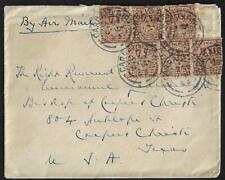 By Air Mail
The Right Reverend
Bishop of Corpus Christi
804 Antelope St
Corpus Christi
Texas
U S A